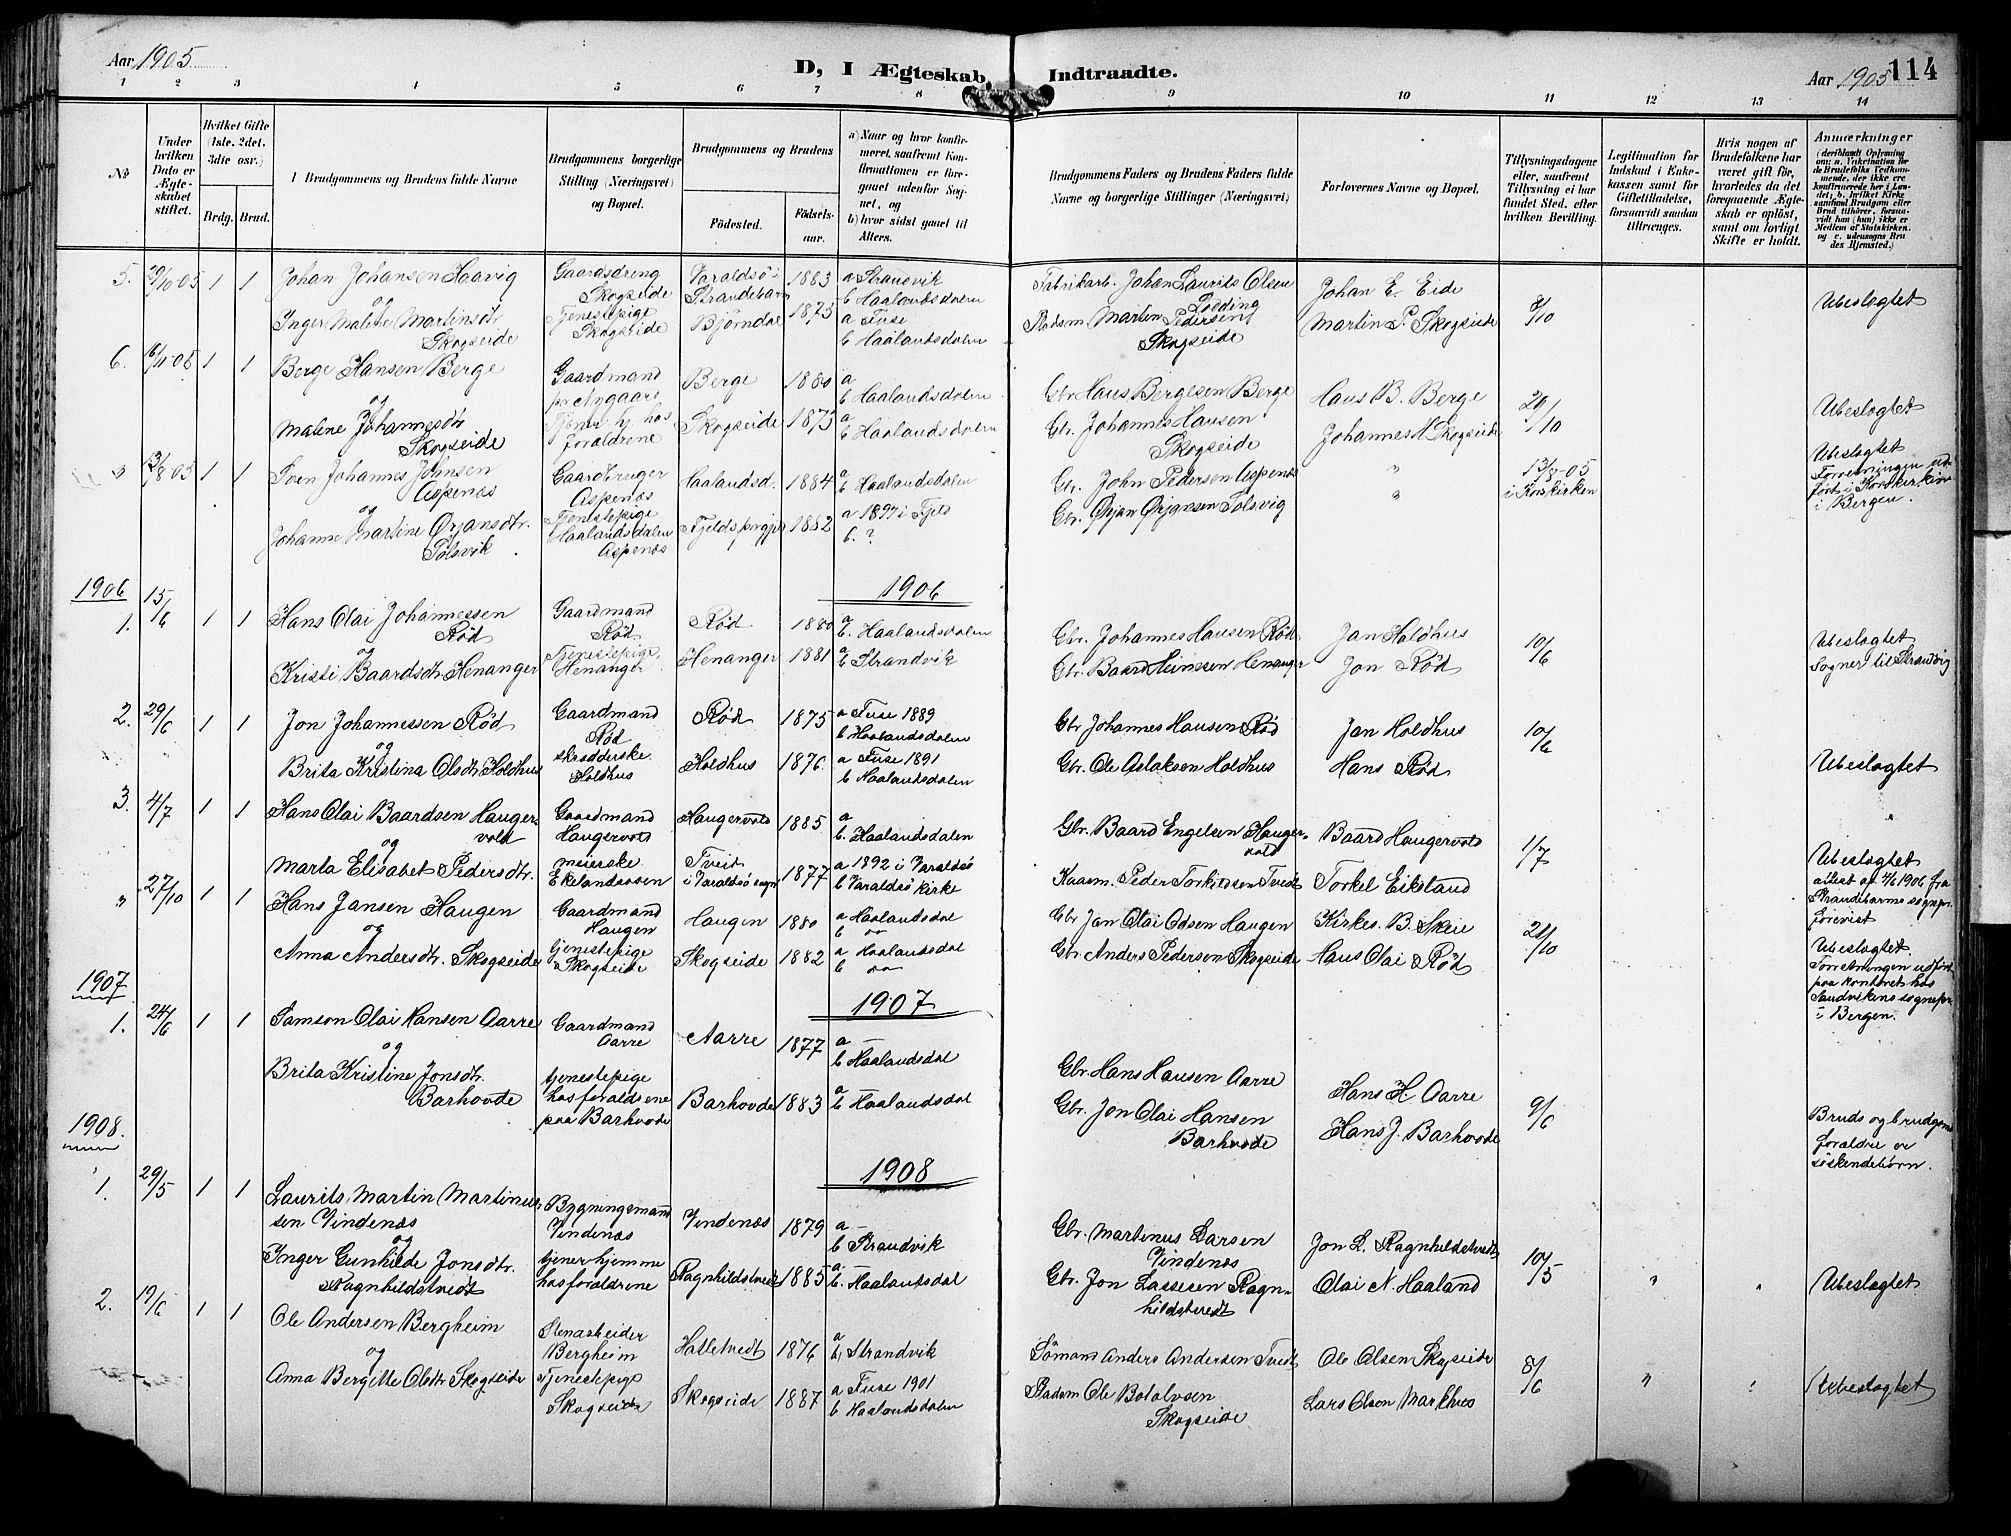 Aar 1905
D, I Ægteskab Indtraadte.
Aar 1905 114
1 2 3 4 5 6 7 8 9 10 11 12 13 14
No
Under hvilken Dato er Ægteskabet stiftet.
Hvilket Gifte (1ste, 2det, 3die osv.)
Brdg. Brud.
Brudgommens og Brudens fulde Navne
Brudgommens borgerlige Stilling (Næringsvei) og Bopæl.
Brudgommens og Brudens
Fødested.
Fødsels-aar.
a) Naar og hvor konfirmeret, saafremt Konfirmationen er foregaaet udenfor Sognet, og
b) hvor sidst gaaet til Alters.
Brudgommens Faders og Brudens Faders fulde Navne og borgerlige Stillinger (Næringsvei)
Forlovernes Navne og Bopæl.
Tillysningsdagene eller, saafremt Tillysning ei har fundet Sted, efter hvilken Bevilling.
Legitimation for Indskud i Enkekassen samt for Giftetilladelse, forsaavidt saadan tiltrænges.
Hvis nogen af Brudefolkene har været gift før, hvorledes da det foregaaende Ægteskab er opløst, samt om lovligt Skifte er holdt.
Anmærkninger
5. 29/10 05 1 1 Johan Johansen Haavig
og
Inger Malene Martinsdtr Skogseide
Gaardsdreng Skogseide
Tjenestepige Skogseide
Varaldsö i Strandebarm 1883
Björndal 1875
a Strandvik
b Haalandsdalen
a Fuse
b Haalandsdalen
Fabrikarb. Johan Laurits Olsen
Martin Pedersen Skogseide
Johan E. Eide
Martin P. Skogseide
8/10
Ubeslægtet
6. 6/11 05 1 1 Berge Hansen Berge
og
Malene Johannesdtr Skogseide
Gaardmand
Forældrene
Berge 1880
Skogseide 1873
a
b Haalandsdalen
a
b Haalandsdalen
Gbr Hans Bergesen Berge
Gbr. Johannes Hansen Skogseide
Hans B. Berge
Johannes H Skogseide
29/10
Ubeslægtet
" 1 1 Sven Johannes Johnsen Aspenæs
og
Johanne Martine Ørjansdtr. Tolsvik
Gaardbruger Aspenæs
Tjenestepige Haalandsdalen Aspenæs
Haalandsd. 1884
1882
a
b Haalandsdalen
a 1897 i Fjeld
b. ?
Gbr. John Pedersen Aspenæs
Gbr. Ørjan Ørjansen Tolsvig
"
"
13/8-05 i Korskirken
Ubeslægtet
Forretningen udført i Korskirken i Bergen.
1906
1906
1. 15/6 1 1 Hans Olai Johannessen Rød
og
Kristi Baardsdtr Henanger
Gaardmand Rød
Tjenestepige Henanger
Rød 1880
Henanger 1881
a
b. Haalandsdalen
a
b Strandvik
Gbr. Johannes Hansen Rød
Gbr. Baard Henanger
Jan Holdhus
Jon Rød
10/6
Ubeslægtet
Sogner til Strandvig
2. 29/6 1 1 Jon Johannessen Rød
og
Brita Kristina Olsdtr Holdhus
Gaardmand Rød
skrædderske Holdhus
Rød 1875
Holdhus 1876
a Fuse 1889
b Haalandsdalen
a Fuse 1891
b Haalandsdalen
Gbr Johannes Hansen Rød
Gbr. Ole Aslaksen Holdhus
Jan Holdhus
Hans Rød
10/6
Ubeslægtet
3. 4/7 1 1 Hans Olai Baardsen Haugervold
og
Marta Elisabet Pedersdtr.
Gaardmand Haugervold
meierske
Haugervold 1885
Tveit i Varaldsö sogn 1877
a
b. Haalandsdalen
a 1892 i Varaldsö
b Varaldsö kirke
Gbr. Baard Engelsen Haugervold
Peder Torkildsen Tvedt
Baard Haugervold
Torkel Eikeland
1/7
Ubeslægtet
attest af 4/6 1906 fra Strandebarms forevist
" 27/10 1 1 Hans Jansen Haugen
og
Anna Andersdtr. Skogseide
Gaardmand Haugen
tjenestepige Skogseide
Haugen 1880
Skogseide 1882
a Haalandsdal
b do
a Haalandsdal
b do
Gbr Jan Olai Olsen Haugen
Gbr Anders Pedersen Skogseide
Kirkes. B. Skeie
Hans Olai Rød
21/10
Ubeslægtet.
Forretningen udført paa kontoret hos Sandvikens sognepr i Bergen.
1907
1907
1. 24/6 1 1 Samson Olai Hansen Aarre
og
Brita Kristine Jonsdtr. Barhovde
Gaardmand Aarre
tjenestepige hos forældrene paa Barhovde
Aarre 1877
Barhovde 1883
a —
b Haalandsdal
a
b Haalandsdal
Gbr. Hans Hansen Aarre
Gbr. Jon Olai Hansen Barhovde
Hans H. Aarre
Hans J. Barhovde
9/6
Bruds og brudgoms forældre er söskendebörn.
1908.
1908
1. 29/5 1 1 Laurits Martin Martinussen Vindenæs
og
Inger Gunhilde Jonsdtr. Ragnhildstvedt
Bygningsmand Vindenæs
tjener hjemme hos forældrene
Vindenæs 1879
Ragnhildstvedt 1885
a —
b Strandvik
a
b. Haalandsdal
Gbr. Martinus Larsen Vindenæs
Gbr. Jon Lassesen Ragnhildstvedt
Jon L. Ragnhildstvedt
Olai N. Haaland
10/5
"
"
Ubeslægtet
2. 19/6 1 1 Ole Andersen Bergheim
og
Anna Bergitte Olsdtr Skogseide
Stenarbeider Bergheim
Tjenestepige Skogseide
Hatletvedt 1876
Skogseide 1887
a
b, Strandvik
a Fuse 1901
b Haalandsdalen
Sömand Anders Andersen Tvedt
Ole Botolvsen Skogseide
Ole Olsen Skogseide
Lars Olsen Markhus
8/6
"
"
Ubeslægtet